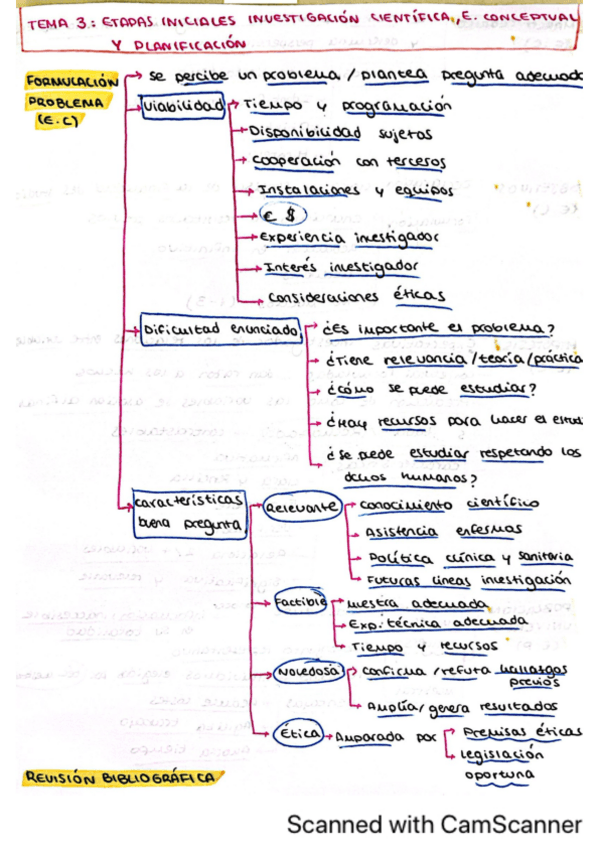 TEMA 3: ETAPAS INICIALES INVESTIGACIÓN CIENTÍFICA, E. CONCEPTUAL
Y PLANIFICACIÓN
FORMULACIÓN
PROBLEMA
(E.C)
se percibe un problema / plantea pregunta adecuada
Viabilidad
Tiempo y programación
Disponibilidad sujetos
Cooperación con terceros
Instalaciones y equipos
€ $
Experiencia investigador
Interés investigador
Consideraciones éticas
Dificultad enunciado
¿Es importante el problema?
¿Tiene relevancia/teoría/práctica
¿Cómo se puede estudiar?
¿Hay recursos para hacer el estud
¿Se puede estudiar respetando los
dchos humanos?
características
buena pregunta
Relevante
Conocimiento científico
Asistencia enfermos
Política clínica y sanitaria
Futuras líneas investigación
Factible
muestra adecuada
Exp. técnica adecuada
Tiempo y recursos
Novedosa
Confirma / refuta hallazgos
previos
Amplía/genera resultados
Ética
Amparada por
Premisas éticas
legislación
oportuna
REVISIÓN BIBLIOGRÁFICA
Scanned with CamScanner